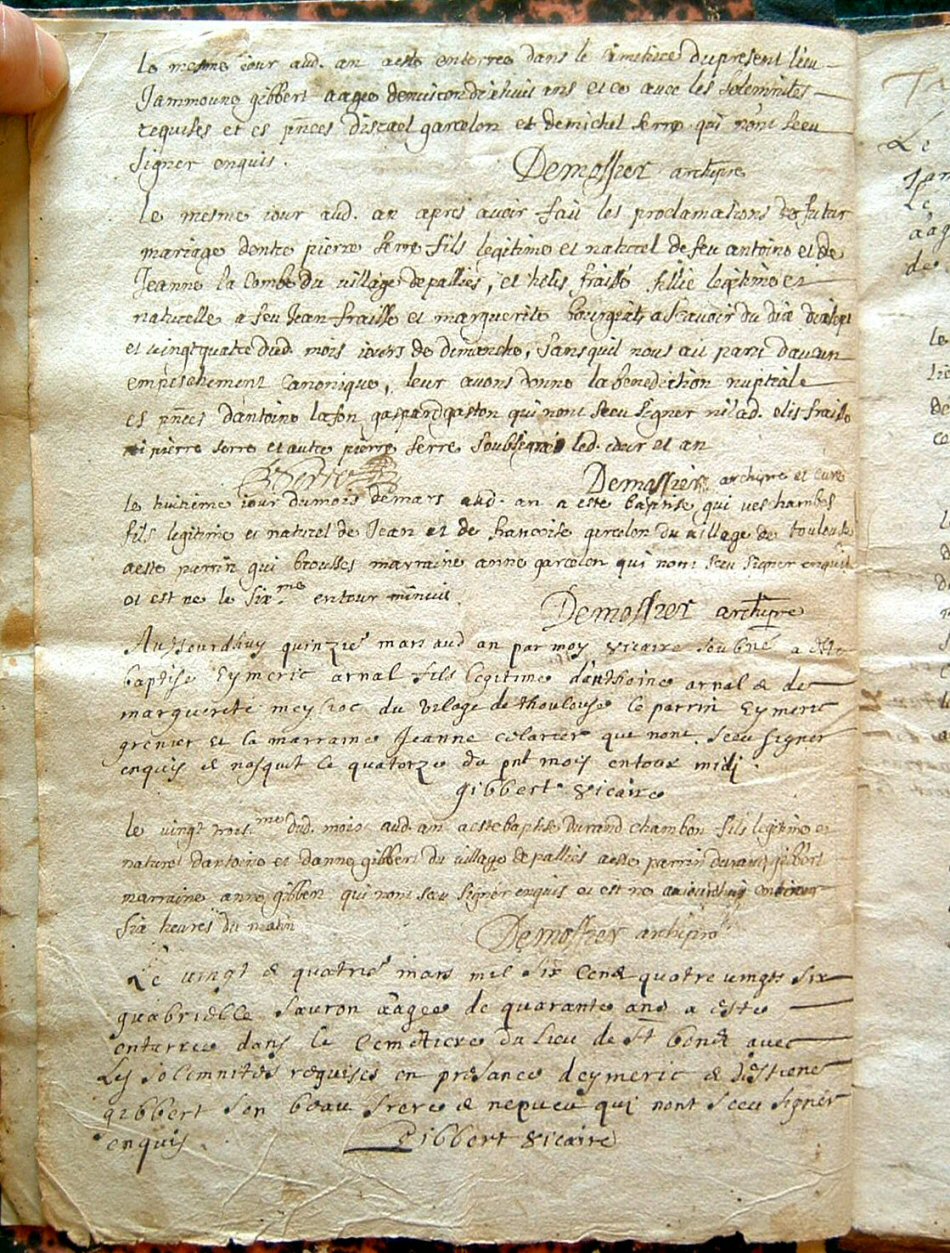 le mesme jour aud. an a este enterree dans le cimitiere du present lieu
gibbert aagee denviron dixhuit ans et ce avec les solemnites
requises et es pnces disrael garcelon et de michel serre qui nont sceu
signer enquis. Demossier archipre
Le mesme jour aud. an apres avoir fait les proclamations de futur
mariage dentre pierre serre fils legitime et naturel de feu antoine et de
Jeanne la Combe du village de palliès, et helis fraisse fillie legitime et
naturelle a feu Jean fraisse et marguerite a scavoir du dix dixsept
et vingt quatre dud. mois jours de dimanche, sans quil nous ait paru daucun
empeschement Canonique, leur avons donne la benediction nuptiale
es pnces dantoine lafon gaspard gaston qui nont sceu signer ni lad. elis fraisse
ni pierre serre et autre pierre serre soubsigné led. jour et an
Demossier archipre et curé
le huitieme jour du mois de mars aud. an a este baptise gui
fils legitime et naturel de Jean et de francoise garcelon du village de toulouse
a este parrin gui brousses marraine anne garcelon qui nont sceu signer enquis
et est ne le six.me entour minuit Demossier archipre
Aujourdhuy quinzie mars aud an par moy vicaire soubné a este
baptise Eymeric arnal fils legitime danthoine arnal & de
marguerite du vilage de thoulouse le parrin Eymeric
grenier et la marraine Jeanne qui nont sceu signer
enquis & nasquit le quatorze du pnt mois entour midi.
gibbert vicaire
le vingt trois.me dud. mois aud. an a este baptisé durand chambon fils legitime et
naturel dantoine et danne gibbert du village de palliès a este parrin durand gibbert
marraine anne gibbert qui nont sceu signer enquis et est ne aujourdhuy environ
six heures du matin Demossier archipre
Le vingt & quatrie mars mil six cens quatre vingts six
guabrielle sauron aagee de quarante ans a este
entarree dans le Cemetiere du lieu de st bonet avec
Les solemnites requises en presance deymeric & destiene
gibbert son beau frere & nepveu qui nont sceu signer
enquis. Gibbert vicaire